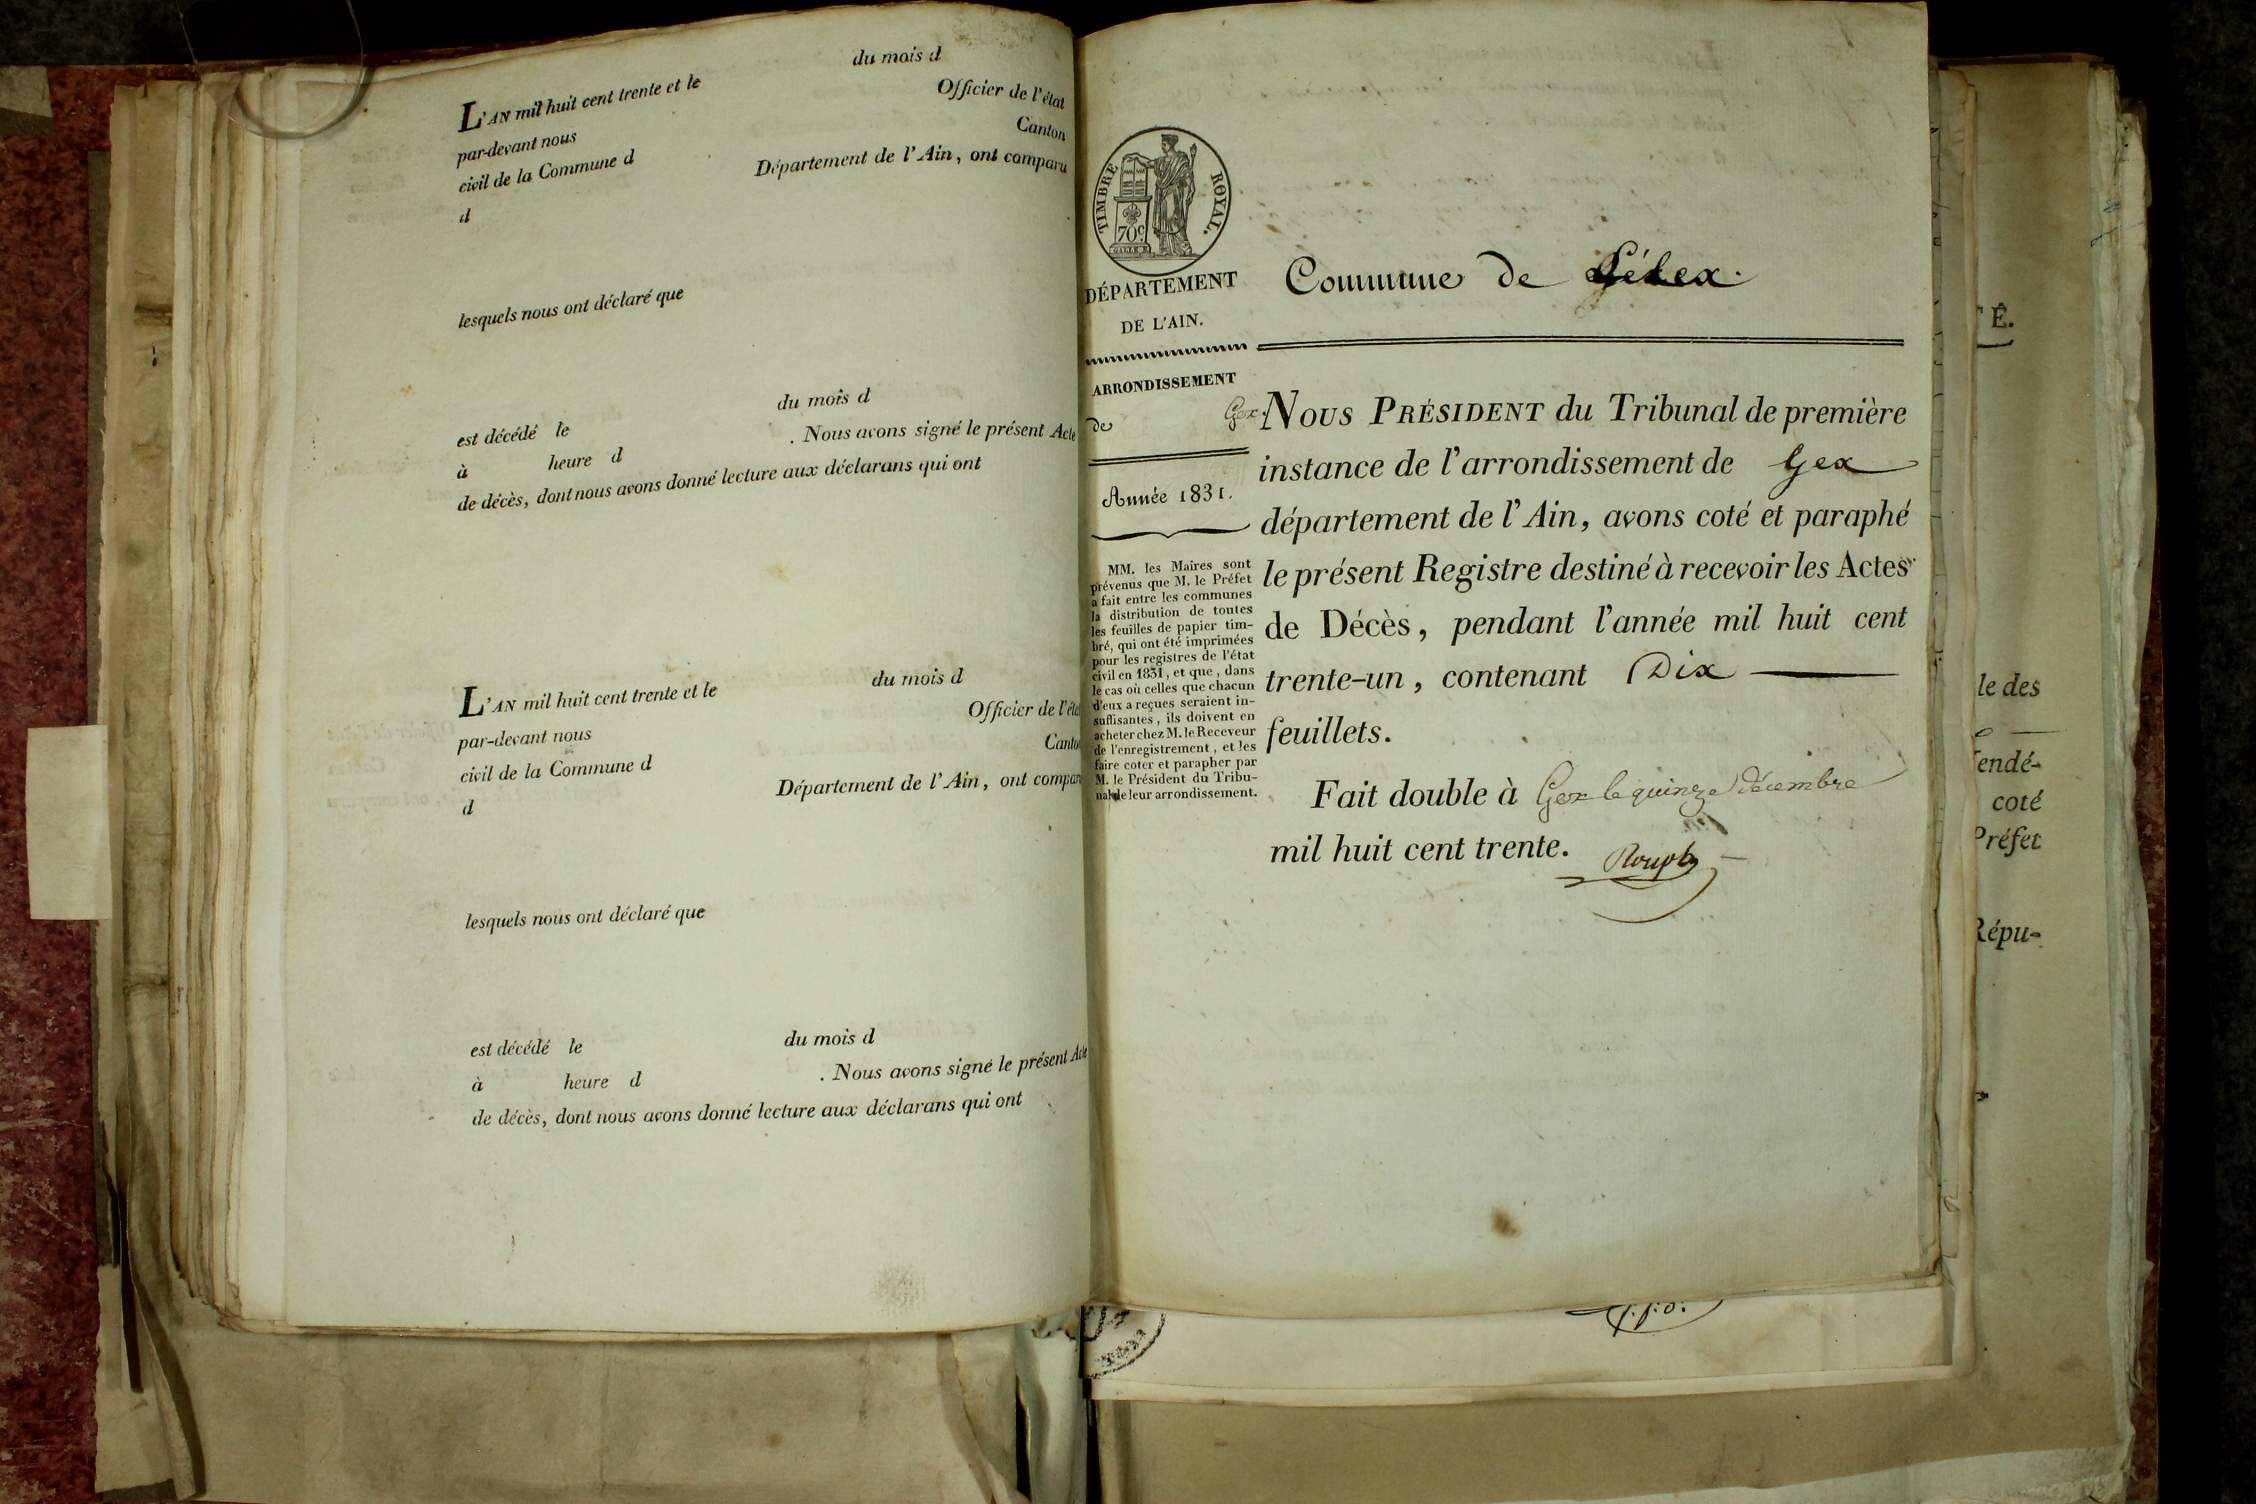 du mois d
L'AN mil huit cent trente et le
Officier de l'état
par-devant nous
Canton
civil de la Commune d
Département de l'Ain, ont comparu
d
lesquels nous ont déclaré que
du mois d
est décédé le
. Nous avons signé le présent Acte
à heure d
de décès, dont nous avons donné lecture aux déclarans qui ont
du mois d
L'AN mil huit cent trente et le
Officier de l'éta
par-devant nous
Canto
civil de la Commune d
Département de l'Ain, ont compar
d
lesquels nous ont déclaré que
du mois d
est décédé le
. Nous avons signé le présent Acte
à heure d
de décès, dont nous avons donné lecture aux déclarans qui ont
TIMBRE ROYAL.
70c
DÉPARTEMENT
DE L'AIN.
ARRONDISSEMENT
de Gex.
Année 1831.
MM. les Maires sont
prévenus que M. le Préfet
a fait entre les communes
la distribution de toutes
les feuilles de papier tim-
bré, qui ont été imprimées
pour les registres de l'état
civil en 1831, et que, dans
le cas où celles que chacun
d'eux a reçues seraient in-
suffisantes, ils doivent en
acheter chez M. le Receveur
de l'enregistrement, et les
faire coter et parapher par
M. le Président du Tribu-
nal de leur arrondissement.
Commune de Lélex.
NOUS PRÉSIDENT du Tribunal de première
instance de l'arrondissement de Gex
département de l'Ain, avons coté et paraphé
le présent Registre destiné à recevoir les Actes
de Décès, pendant l'année mil huit cent
trente-un, contenant Dix
feuillets.
Fait double à Gex le quinze Décembre
mil huit cent trente.
Ê.
le des
endé-
coté
Préfet
Répu-